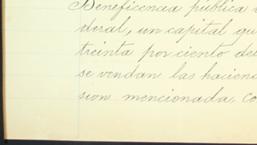 Beneficencia pública
deral, un capital qu
treinta por ciento de
se vendan las hacien
sion mencionada co